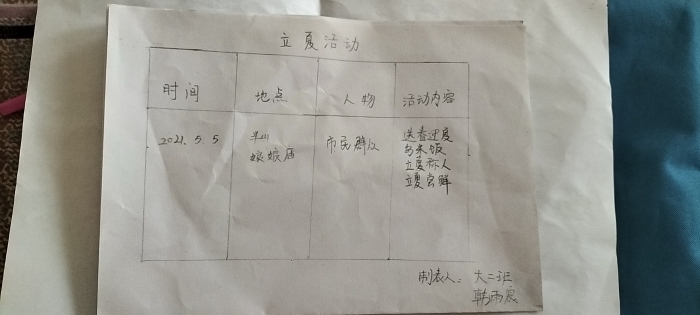 立夏活动
时间 地点 人物 活动内容
2021.5.5 半山 市民群众 送春迎夏
娘娘庙 乌米饭
立夏称人
立夏尝鲜
制表人：大二班
韩雨宸